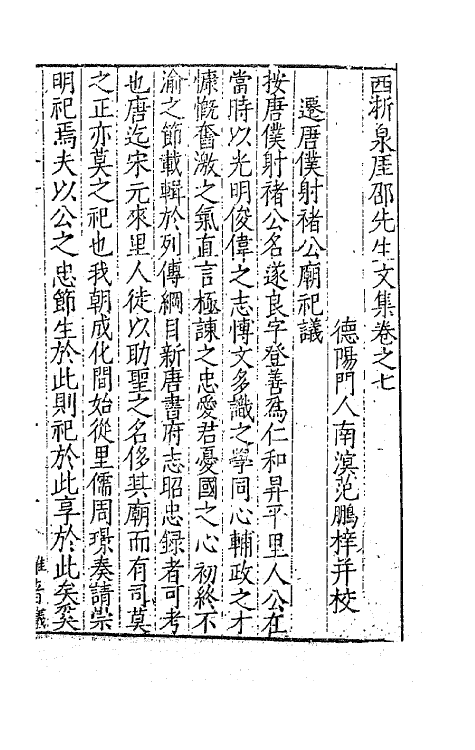 西浙泉厓邵先生文集卷之七
德陽門人南溟范鵬梓并校
遷唐僕射禇公廟祀議
按唐僕射禇公名遂良字登善爲仁和昇平里人公在
當時以光明俊偉之志博文多識之學同心輔政之才
慷慨奮激之氣直言極諫之忠愛君憂國之心初終不
渝之節載輯於列傳綱目新唐書府志昭忠録者可考
也唐迄宋元來里人徒以助聖之名侈其廟而有司莫
之正亦莫之祀也我朝成化間始從里儒周璟奏請崇
明祀焉夫以公之忠節生於此則祀於此享於此矣奚